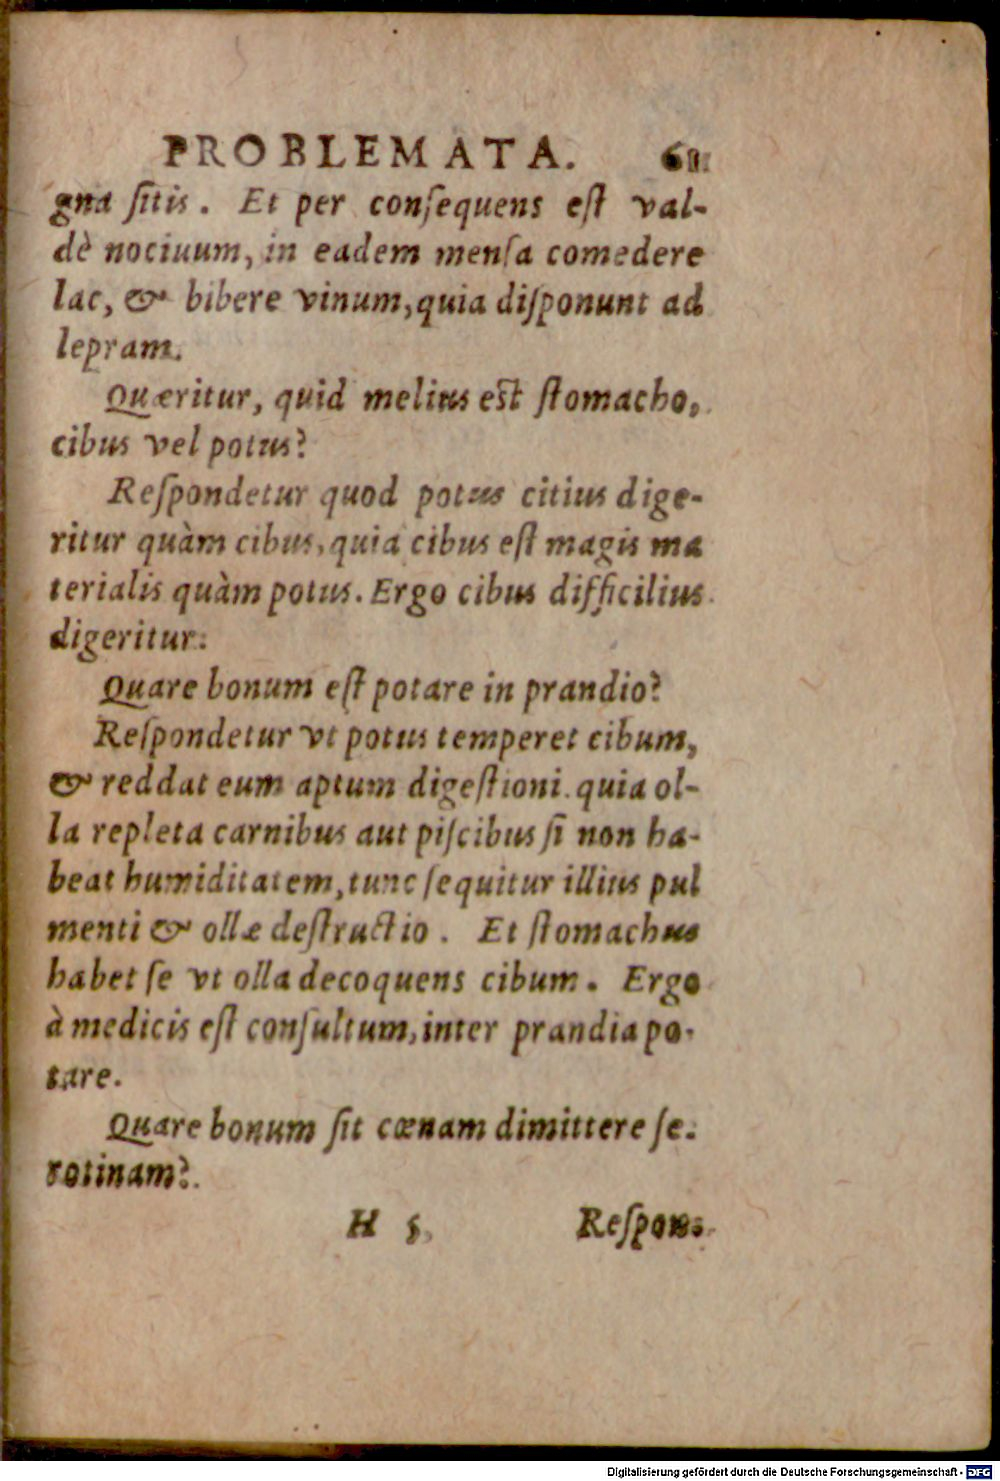 PROBLEMATA. 61
gna ſitis. Et per conſequens eſt val-
dè nociuum, in eadem menſa comedere
lac, & bibere vinum, quia diſponunt ad
lepram.
Quæritur, quid melius est ſtomacho,
cibus vel potus?
Reſpondetur quod potus citius dige-
ritur quàm cibus, quia cibus eſt magis ma
terialis quàm potus. Ergo cibus difficilius
digeritur.
Quare bonum eſt potare in prandio?
Reſpondetur vt potus temperet cibum,
& reddat eum aptum digeſtioni. quia ol-
la repleta carnibus aut piſcibus ſi non ha-
beat humiditatem, tunc ſequitur illius pul
menti & ollæ deſtructio. Et ſtomachus
habet ſe vt olla decoquens cibum. Ergo
à medicis eſt conſultum, inter prandia po-
tare.
Quare bonum ſit cœnam dimittere ſe-
rotinam?
H 5 Reſpon-
Digitalisierung gefördert durch die Deutsche Forschungsgemeinschaft - DFG